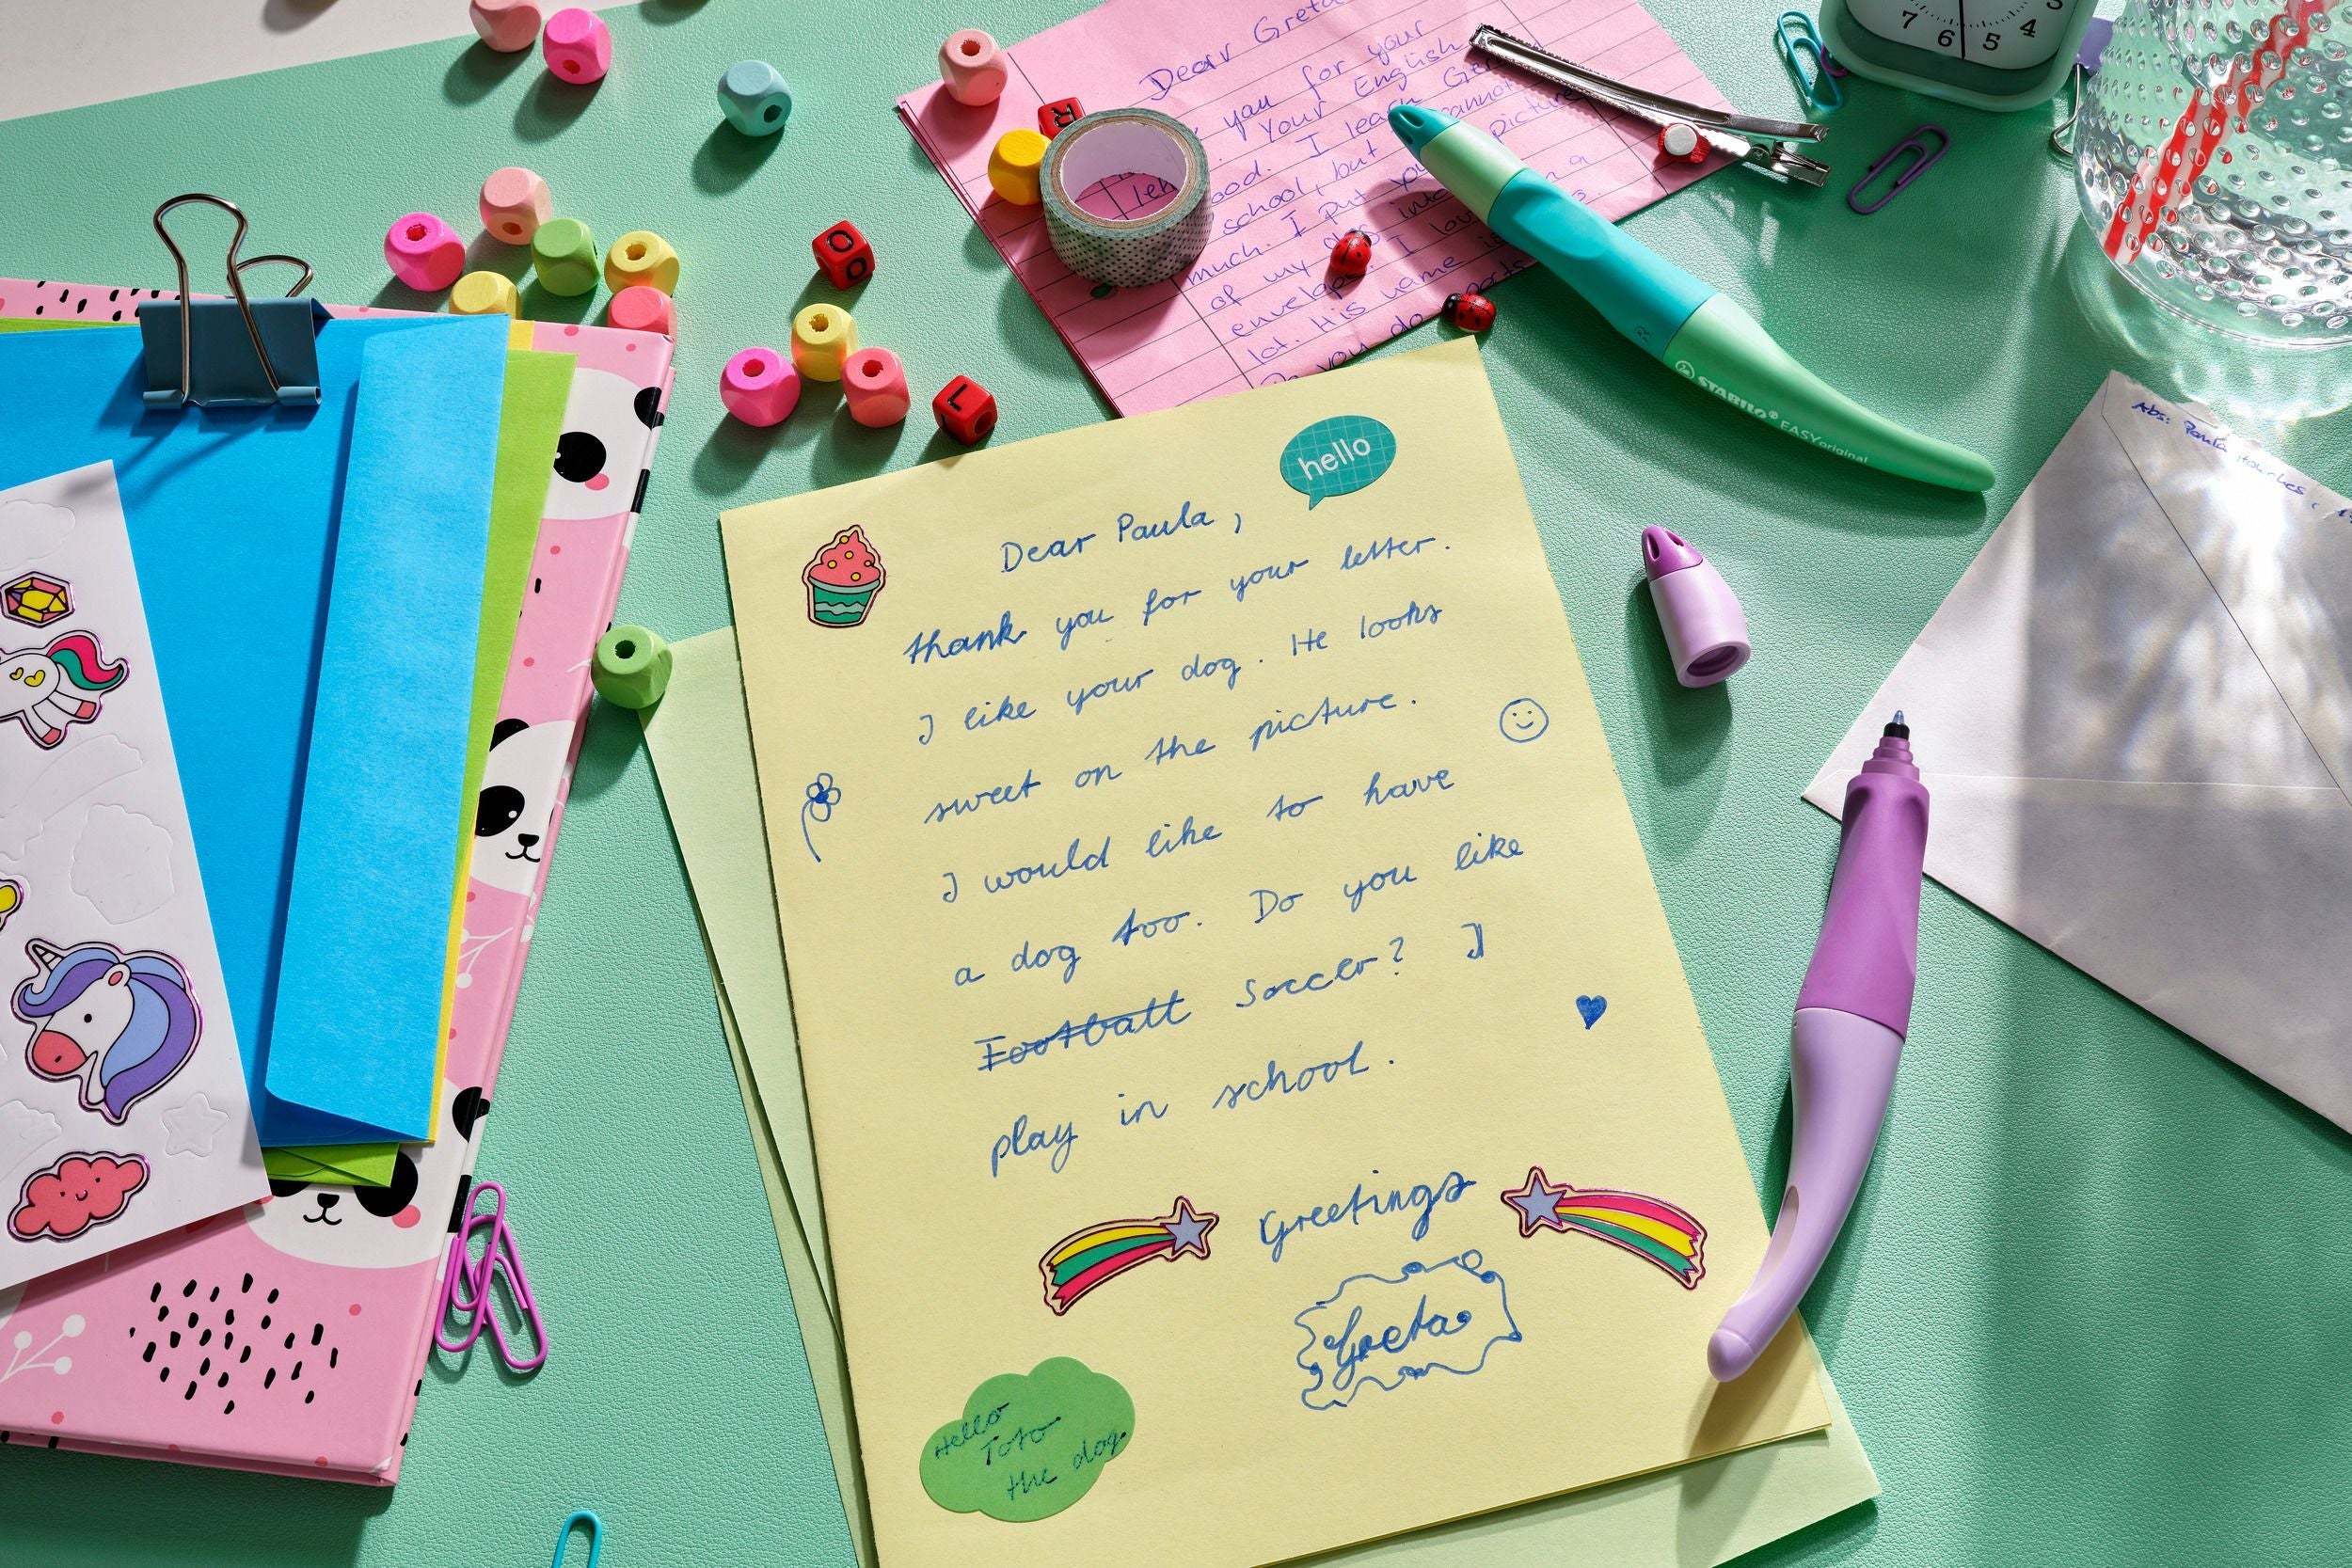 Dear Greta
you for your
Your English
good. I learn Ger
school, but cannot
much. I put your picture
of my dog into a
envelope. I love
lot. His name is
Do you do
R
O
O
L
7
6
5
4
3
STABILO® EASYoriginal
R
Abs: Paula
hello
Dear Paula,
thank you for your letter.
I like your dog. He looks
sweet on the picture.
I would like to have
a dog too. Do you like
Football Soccer? I
play in school.
Greetings
Greta
Hello
Toto
the dog